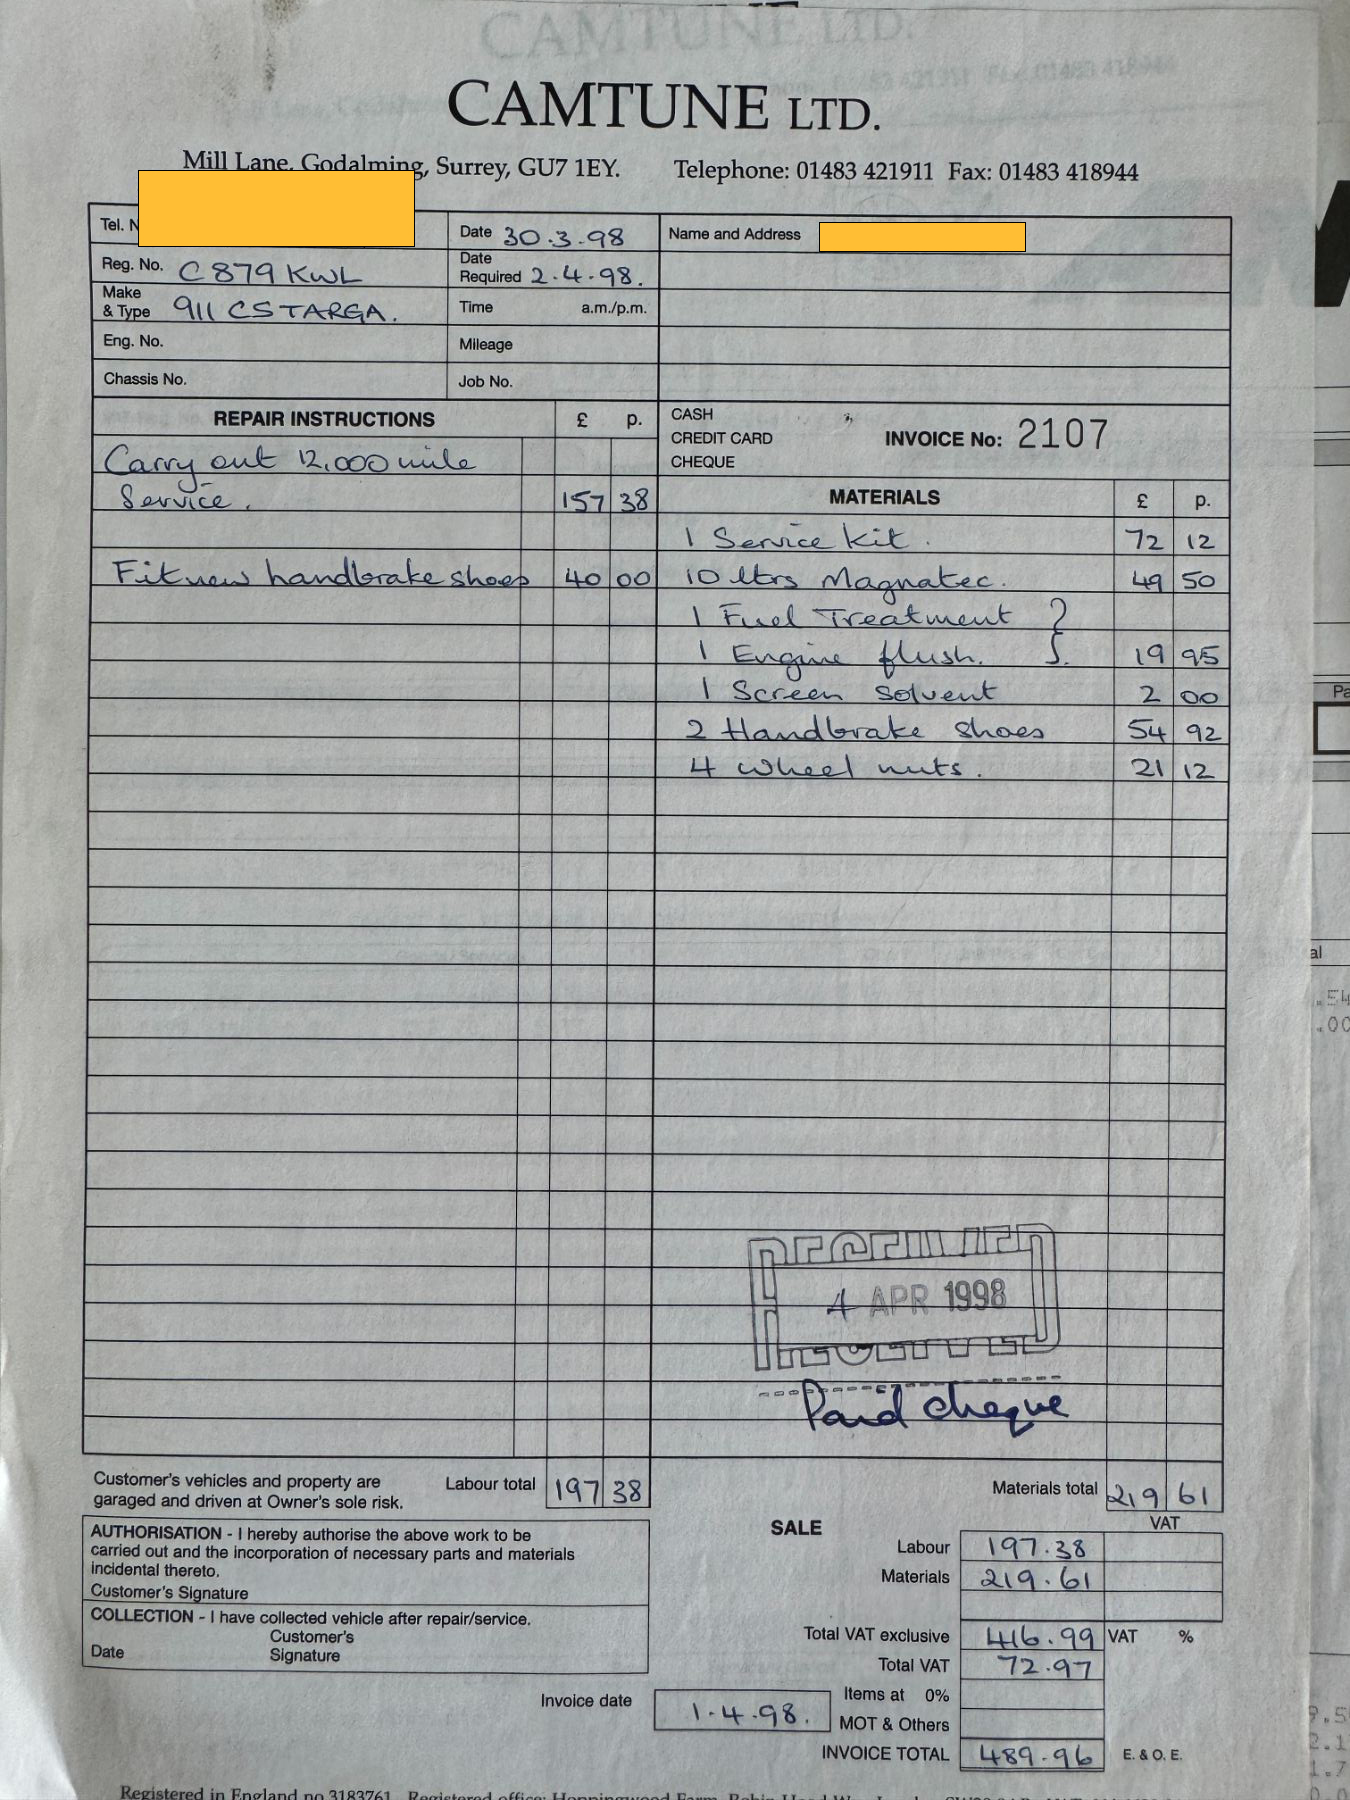 CAMTUNE LTD.
Mill Lane, Godalming, Surrey, GU7 1EY. Telephone: 01483 421911 Fax: 01483 418944
Tel. N
Date 30.3.98
Name and Address
Reg. No. C879 KWL
Date Required 2.4.98.
Make & Type 911 CS TARGA.
Time a.m./p.m.
Eng. No.
Mileage
Chassis No.
Job No.
REPAIR INSTRUCTIONS £ p.
Carry out 12,000 mile
Service. 157 38
Fit new handbrake shoes 40 00
CASH
CREDIT CARD
CHEQUE
INVOICE No: 2107
MATERIALS £ p.
1 Service Kit. 72 12
10 ltrs Magnatec. 49 50
1 Fuel Treatment }
1 Engine flush. } 19 95
1 Screen Solvent 2 00
2 Handbrake shoes 54 92
4 wheel nuts. 21 12
RECEIVED
4 APR 1998
RECEIVED
Paid cheque
Customer's vehicles and property are
garaged and driven at Owner's sole risk.
Labour total 197 38
Materials total 219 61
AUTHORISATION - I hereby authorise the above work to be
carried out and the incorporation of necessary parts and materials
incidental thereto.
Customer's Signature
COLLECTION - I have collected vehicle after repair/service.
Customer's
Date Signature
SALE
VAT
Labour 197.38
Materials 219.61
Total VAT exclusive 416.99 VAT %
Total VAT 72.97
Items at 0%
Invoice date 1.4.98.
MOT & Others
INVOICE TOTAL 489.96 E. & O. E.
Registered in England no 3183761 Registered office: